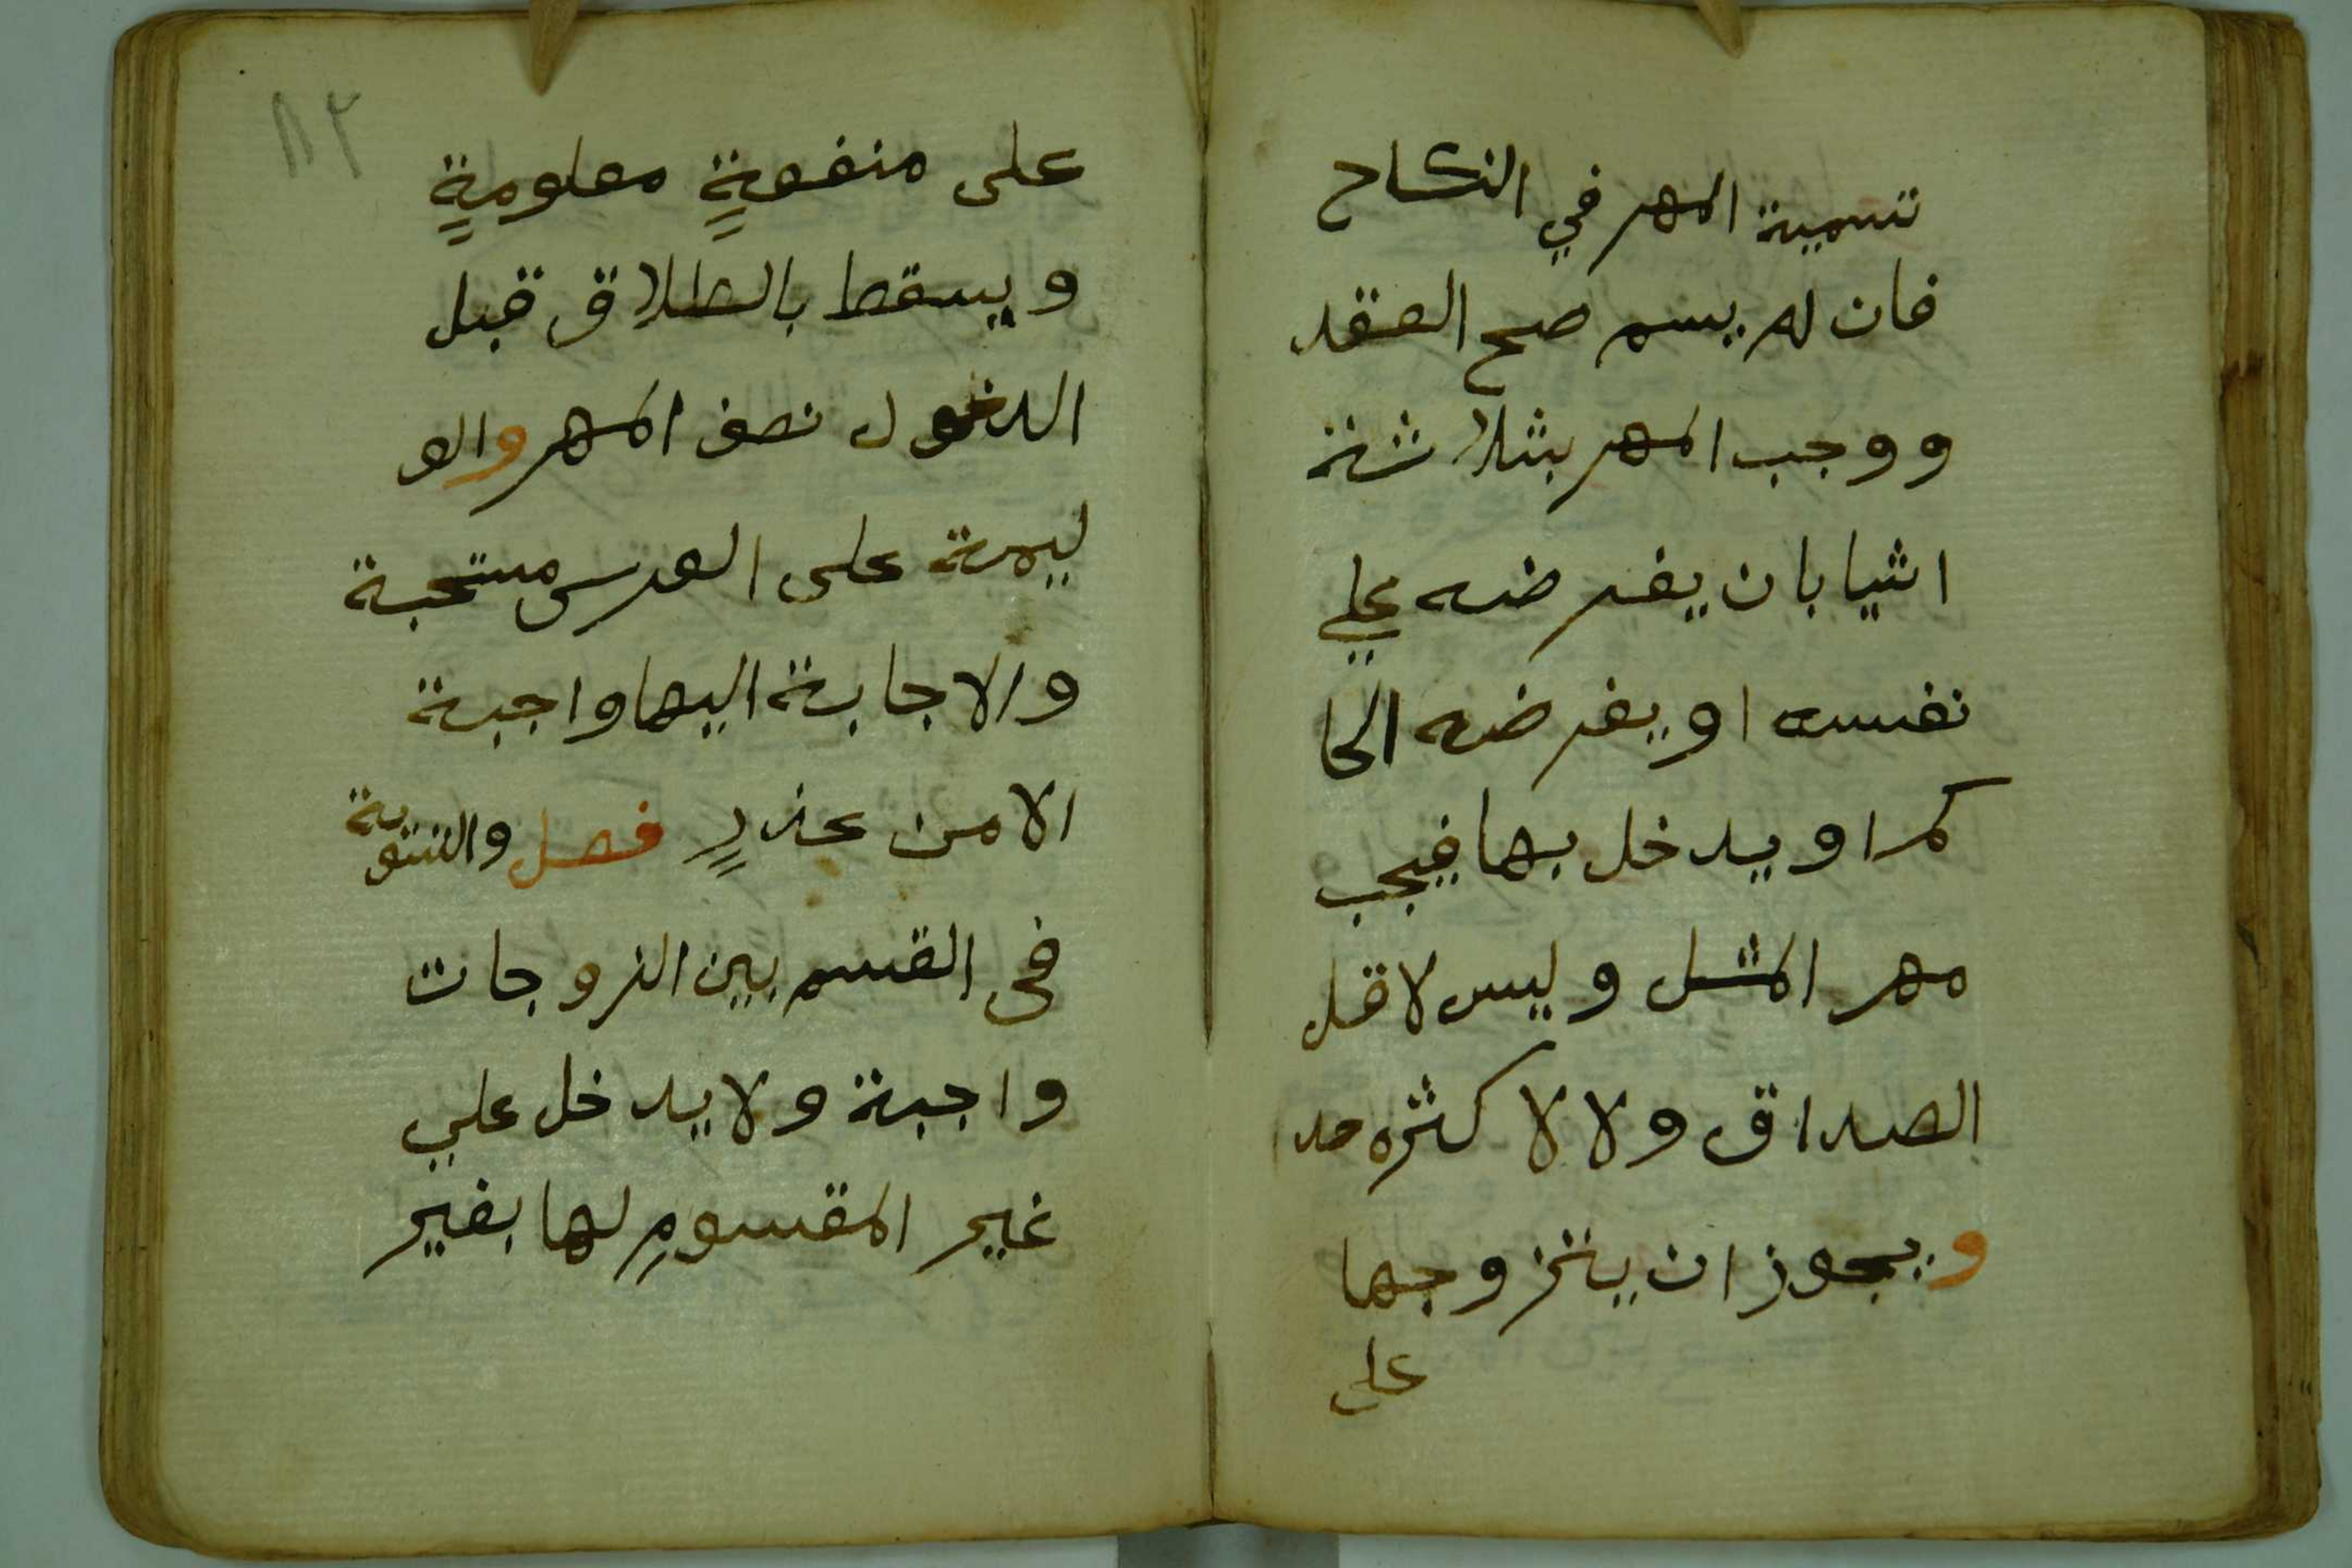 تسمية المهر في النكاح
فان لم يسم صح العقد
ووجب المهر بثلاثة
اشيا بان يفرضه علي
نفسه او يفرضه الحا
كم او يدخل بها فيجب
مهر المثل وليس لاقل
الصداق ولا لاكثره حد
ويجوز ان يتزوجها
على
على منفعةٍ معلومةٍ
ويسقط بالطلاق قبل
الدخول نصف المهر والو
ليمة على العرس مستحبة
والاجابة اليها واجبة
الا من عذرٍ فصل والتسوية
فى القسم بين الزوجات
واجبة ولا يدخل علي
غير المقسومِ لها بغير